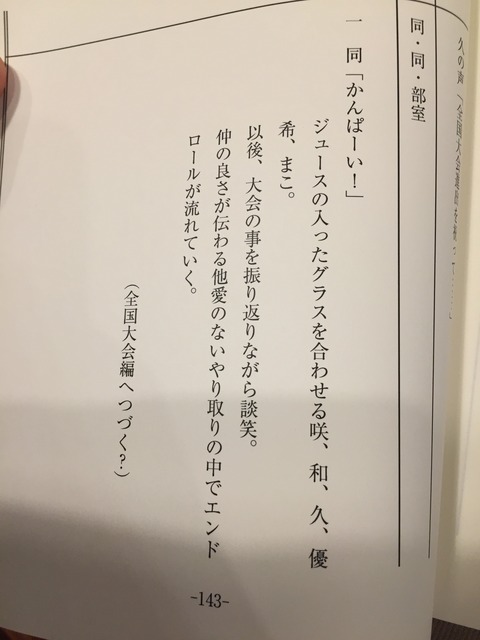 久の声「全国大会進出を祝って……」
同・同・部室
一 同「かんぱーい！」
ジュースの入ったグラスを合わせる咲、和、久、優
希、まこ。
以後、大会の事を振り返りながら談笑。
仲の良さが伝わる他愛のないやり取りの中でエンド
ロールが流れていく。
（全国大会編へつづく？）
-143-